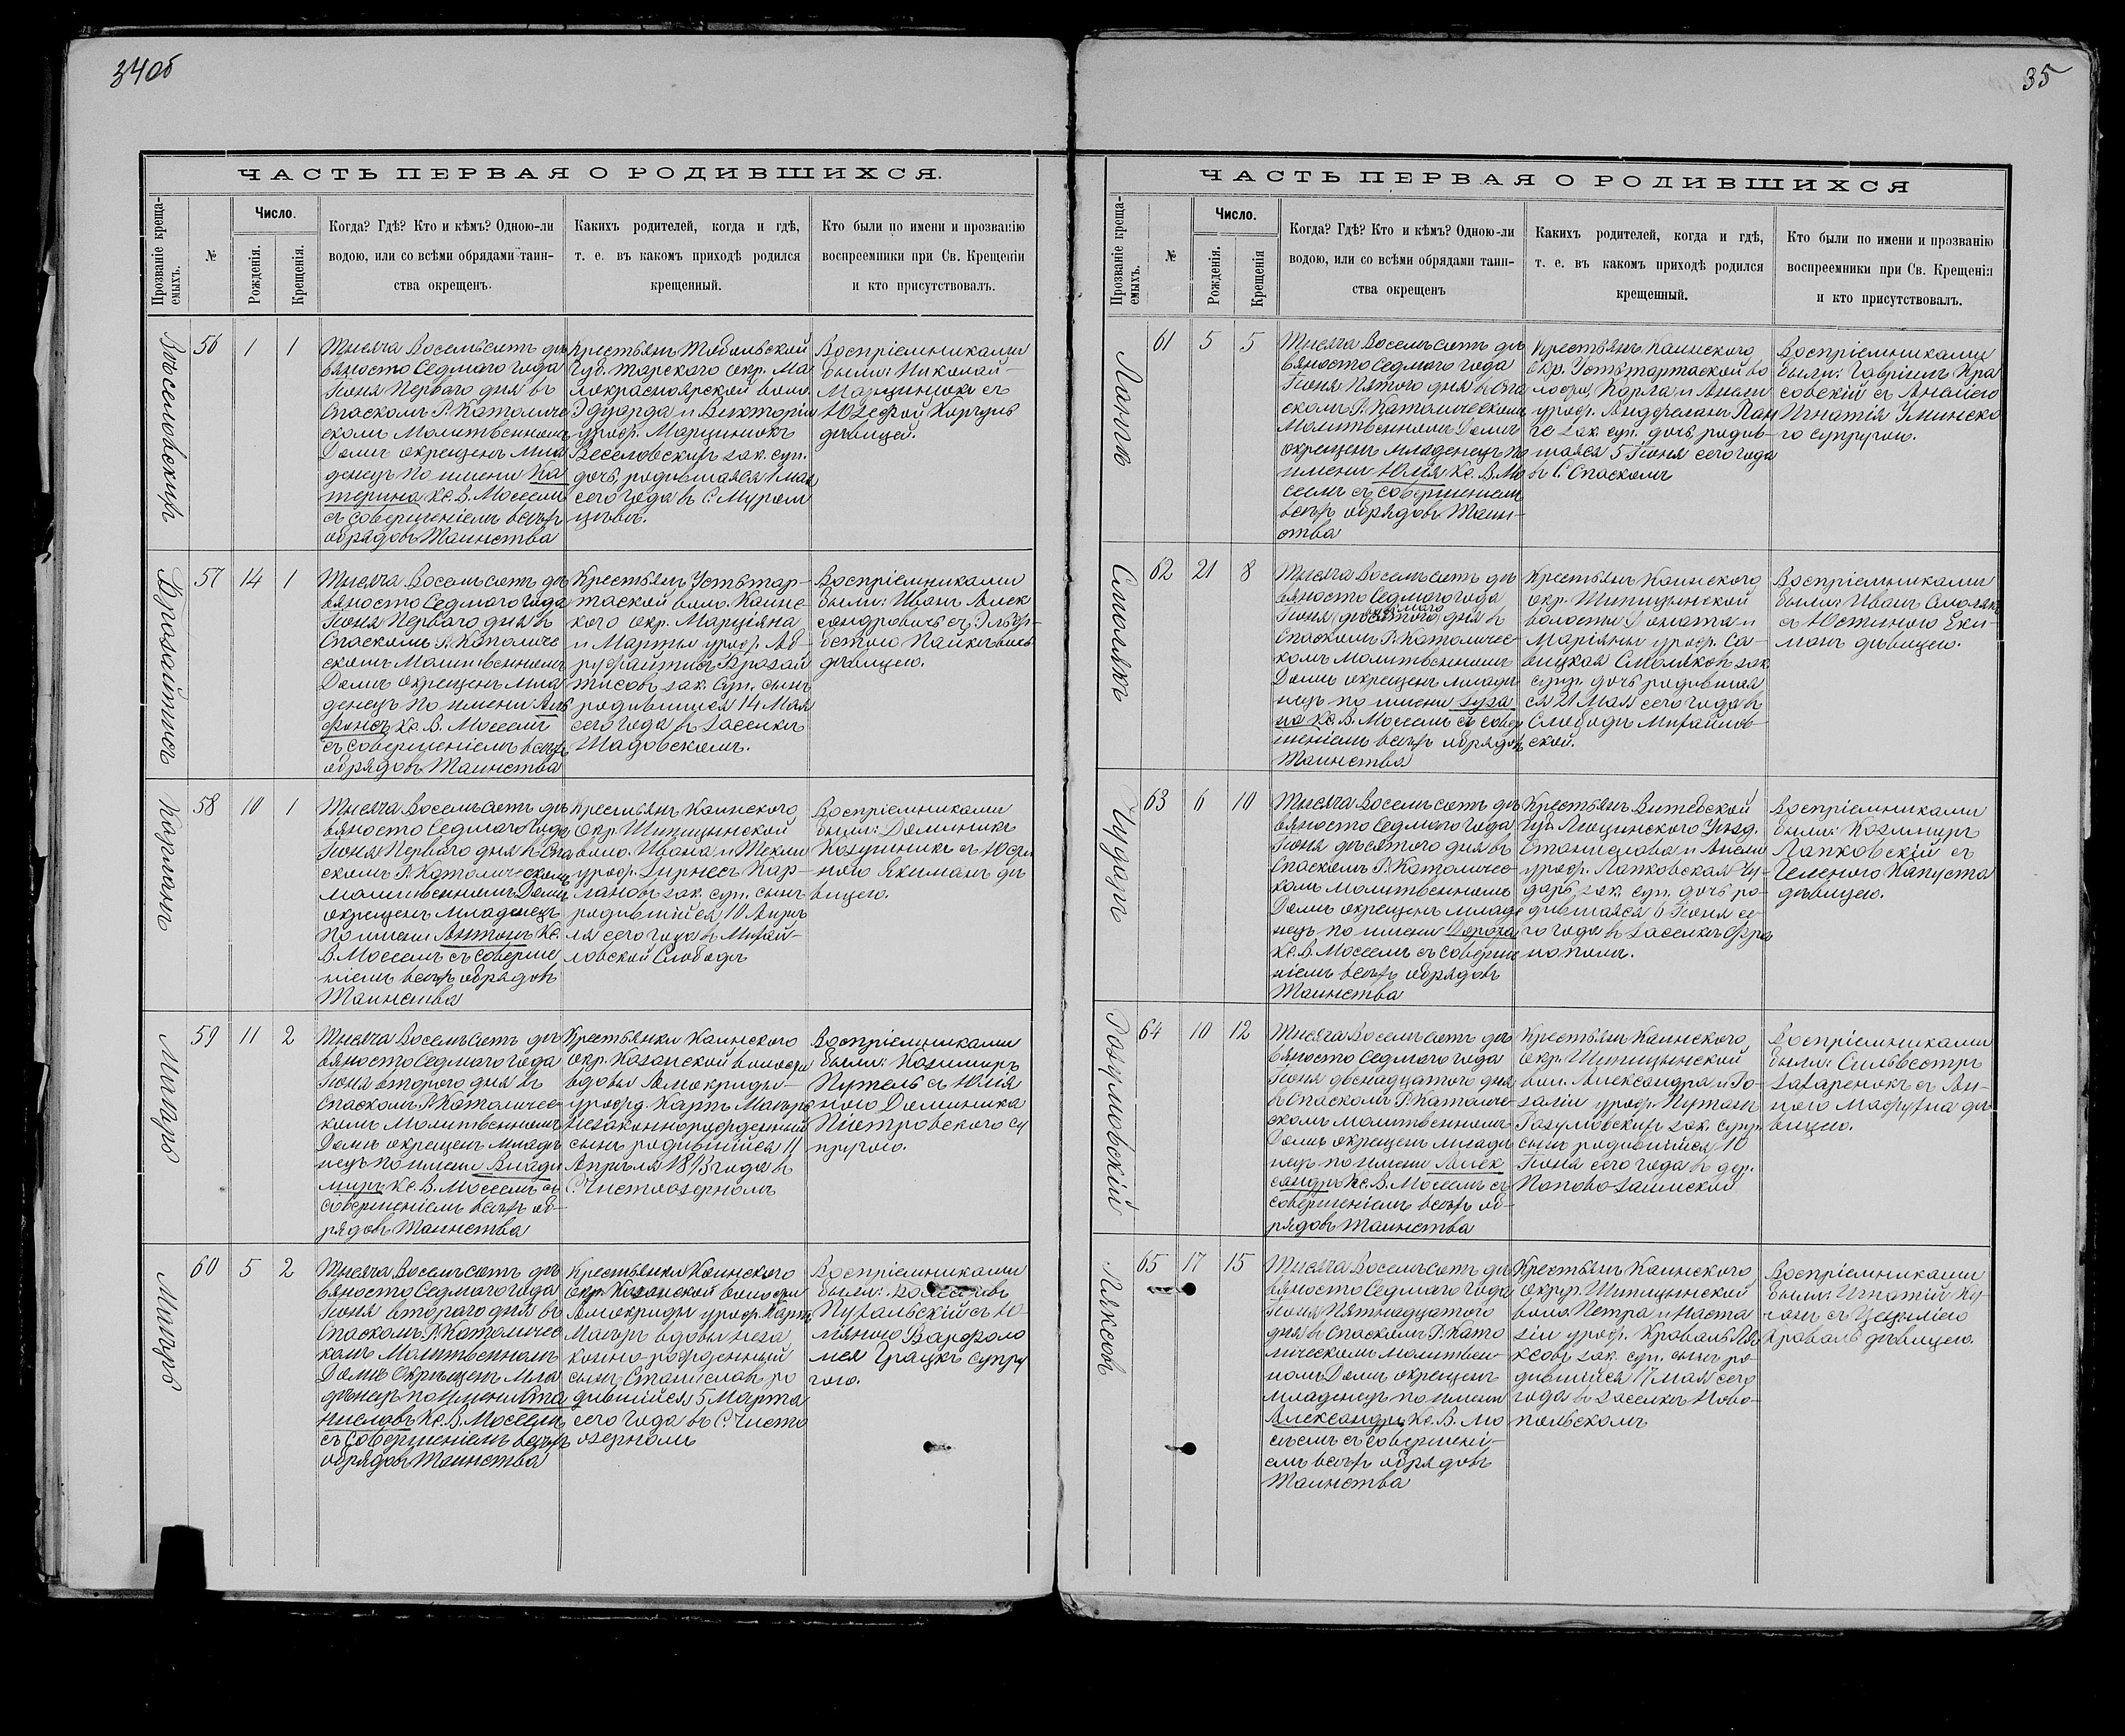 34об
ЧАСТЬ ПЕРВАЯ О РОДИВШИХСЯ.
Прозваніе креща-
емыхъ.
№
Число.
Рожденія.
Крещенія.
Когда? Гдѣ? Кто и кѣмъ? Одною-ли
водою, или со всѣми обрядами таин-
ства окрещенъ.
Какихъ родителей, когда и гдѣ,
т. е. въ какомъ приходѣ родился
крещенный.
Кто были по имени и прозванію
воспреемники при Св. Крещеніи
и кто присутствовалъ.
56
1
1
Тысяча Восемьсотъ дѣ
вяносто Седмаго года
Іюня Перваго дня въ
Спаскомъ Р. Католиче
скомъ Молитвенномъ
Домѣ окрещенъ мла
денецъ по имени Ка
терина Кс. В. Моссемъ
съ совершеніемъ всѣхъ
обрядовъ Таинства
Крестьянъ Тобольской
Губ. Тарскаго окр. Ма
локрасноярской воло.
Эдуарда и Викторіи
урожд. Марцинюкъ
Веселовскихъ зак. суп.
дочь, родившаяся 1 мая
сего года въ С. Муром
цѣвѣ.
Воспріемниками
были: Николай
Марцинюкъ съ
Юзефой
дѣвицей.
57
14
1
Брозайтисъ
Тысяча Восемьсотъ дѣ
вяносто Седмаго года
Іюня Перваго дня въ
Спаскомъ Р. Католиче
скомъ Молитвенномъ
Домѣ окрещенъ мла
денецъ по имени Аль
фонсъ Кс. В. Моссемъ
съ совершеніемъ всѣхъ
обрядовъ Таинства
Крестьянъ Устьтар-
таской воло. Каинс-
кого окр. Марціяна
и Марты урожд.
Брозай
тисовъ зак. суп. сынъ
родившійся 14 Мая
сего года въ Заселкѣ
Шадовскомъ.
Воспріемниками
были: Иванъ Алек
сандровичъ съ Эльж-
бетою
дѣвицею.
58
10
1
Карманъ
Тысяча Восемьсотъ дѣ
вяносто Седмаго года
Іюня Перваго дня въ Спа
скомъ Р. Католическомъ
молитвенномъ Домѣ
окрещенъ младенецъ
по имени Антонъ Кс.
В. Моссемъ съ соверше
ніемъ всѣхъ обрядовъ
Таинства
Крестьянъ Каинского
окр. Шипицынской
воло. Ивана и Текли
урожд. Кар-
мановъ зак. суп. сынъ
родившійся 10 Апрѣ
ля сего года въ Михай-
ловской Слободѣ
Воспріемниками
были: Доминикъ
съ Юзе
Якиманъ дѣ
вицею.
59
11
2
Мигуръ
Тысяча Восемьсотъ дѣ
вяносто Седмаго года
Іюня второго дня въ
Спаскомъ Р. Католичес-
комъ Молитвенномъ
Домѣ окрещенъ младе
нецъ по имени Влади
миръ Кс. В. Моссемъ съ
совершеніемъ всѣхъ об-
рядовъ Таинства
Крестьянки Каинского
окр. Казанской волости
вдовы
урожд. Карпъ Мигуръ
незаконнорожденный
сынъ родившійся 11
Апрѣля года въ
С. Чистоозерномъ
Воспріемниками
были: Казимиръ
съ Юлія
ною Доминика
Піотровского су
пругою.
60
5
2
Мигуръ
Тысяча Восемьсотъ дѣ
вяносто Седмаго года
Іюня второго дня въ
Спаскомъ Р. Католичес
комъ Молитвенномъ
Домѣ Окрещенъ мла
денецъ по имени Ста
ниславъ Кс. В. Моссемъ
съ совершеніемъ всѣхъ
обрядовъ Таинства
Крестьянки Каинского
окр. Казанской волости
урожд. Карпъ
Мигуръ вдовы неза
конно-рожденный
сынъ Станиславъ ро
дившійся 5 Марта
сего года въ С. Чисто
озерномъ
Воспріемниками
были:
съ Ю-
ліяною Варфоло
мея Грацкъ супру
гою.
35
ЧАСТЬ ПЕРВАЯ О РОДИВШИХСЯ
Прозваніе креща-
емыхъ.
№
Число.
Рожденія.
Крещенія
Когда? Гдѣ? Кто и кѣмъ? Одною-ли
водою, или со всѣми обрядами таин-
ства окрещенъ
Какихъ родителей, когда и гдѣ,
т. е. въ какомъ приходѣ родился
крещенный.
Кто были по имени и прозванію
воспреемники при Св. Крещеніи
и кто присутствовалъ.
61
5
5
Тысяча Восемьсотъ дѣ
вяносто Седмаго года
Іюня Пятого дня въ Спа
скомъ Р. Католическомъ
Молитвенномъ Домѣ
окрещенъ младенецъ по
имени Юлія Кс. В. Мо
ссемъ съ совершеніемъ
всѣхъ обрядовъ Таин-
ства
Крестьянъ Каинского
Окр. Устьтартаской во
лости, Карла и Анели
урожд. Андерманъ Лан
ге зак. суп. дочь, родив-
шаяся 5 Іюня сего года
въ С. Спаскомъ
Воспріемниками
были: Гавріилъ Кра
совскій съ Анѣліею
Игнатія Уминско
го супругою.
62
21
8
Смолякъ
Тысяча Восемьсотъ дѣ
вяносто Седмого года
Іюня восьмого дня въ
Спаскомъ Р. Католичес-
комъ Молитвенномъ
Домѣ окрещенъ младе
нецъ по имени Зуза
на Кс. В. Моссемъ съ совер
шеніемъ всѣхъ обрядовъ
Таинства
Крестьянъ Каинского
окр. Шипицынской
волости Доната и
Маріяны урожд. Са-
вицкая Смоляковъ зак.
супр. дочь родившая
ся 21 Мая сего года въ
Слободѣ Михайлов-
ской.
Воспріемниками
были: Иванъ Смолякъ
съ Юстиною Еки-
манъ дѣвицею.
63
6
10
Чударъ
Тысяча Восемьсотъ дѣ
вяносто Седмаго года
Іюня десятого дня въ
Спаскомъ Р. Католичес-
комъ Молитвенномъ
Домѣ окрещенъ младе
нецъ по имени Дорота
Кс. В. Моссемъ съ соверше
ніемъ всѣхъ обрядовъ
Таинства
Крестьянъ Витебской
Губ. Люцинского Уѣзд.
Станислава и Анели
урожд. Лапковская Чу-
даръ зак. суп. дочь ро-
дившаяся 6 Іюня се-
го года въ Заселкѣ
Воспріемниками
были: Казимиръ
Лапковскій съ
Геленою Капуста
дѣвицею.
64
10
12
Разумовскій
Тысяча Восемьсотъ дѣ
вяносто Седмаго года
Іюня двенадцатого дня
въ Спаскомъ Р. Католиче-
скомъ молитвенномъ
Домѣ окрещенъ младе
нецъ по имени Алек
сандръ Кс. В. Моссемъ съ
совершеніемъ всѣхъ об-
рядовъ Таинства
Крестьянъ Каинского
окр. Шипицынской
вол. Александра и Ро-
заліи урожд.
Разумовскихъ зак. супр.
сынъ родившійся 10
Іюня сего года въ дер.
Попово Заимской
Воспріемниками
были: Сильвестръ
Захаренокъ съ Ан-
ною дѣ
вицею.
65
17
15
Ляксовъ
Тысяча Восемьсотъ дѣ
вяносто Седмаго года
Іюня Пятнадцатого
дня въ Спаскомъ Р. Като
лическомъ молитвен-
номъ Домѣ окрещенъ
младенецъ по имени
Александръ Кс. В. Мо
ссемъ съ совершені-
емъ всѣхъ обрядовъ
Таинства
Крестьянъ Каинского
Округ. Шипицынской
воло. Петра и Наста
зіи урожд. Кроваль Ля
ксовъ зак. суп. сынъ ро-
дившійся 17 мая сего
года въ Заселкѣ Ново-
польскомъ
Воспріемниками
были: Игнатій Ку-
съ Цецыліею
Кроваль дѣвицею.